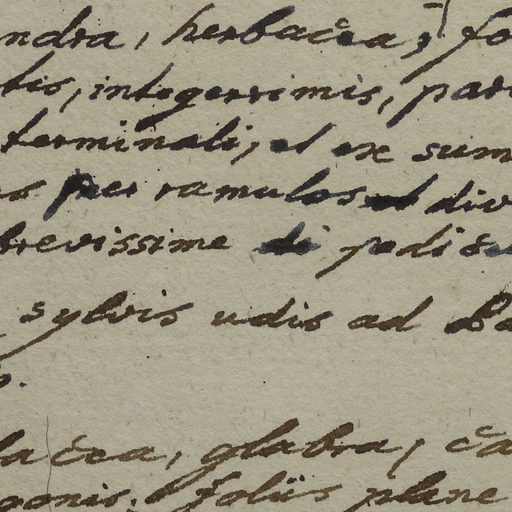 ndra, herbacea, fo
tis, integerrimis, pari
terminali, et ex sum
per ramulos et div
brevissime di pedi
sylvis udis ad
o.
lacea, glabra, ca
gonis, foliis plane